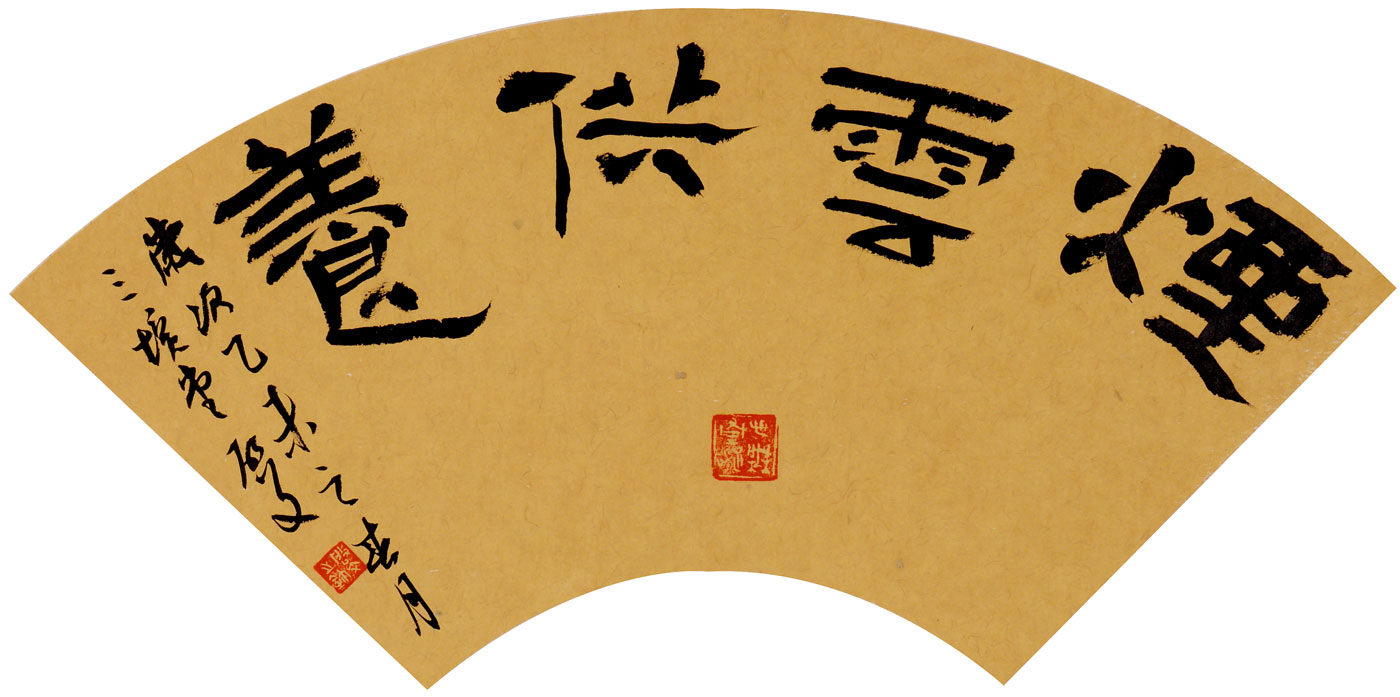 煙雲供養
歲次乙未之春月
三埃堂